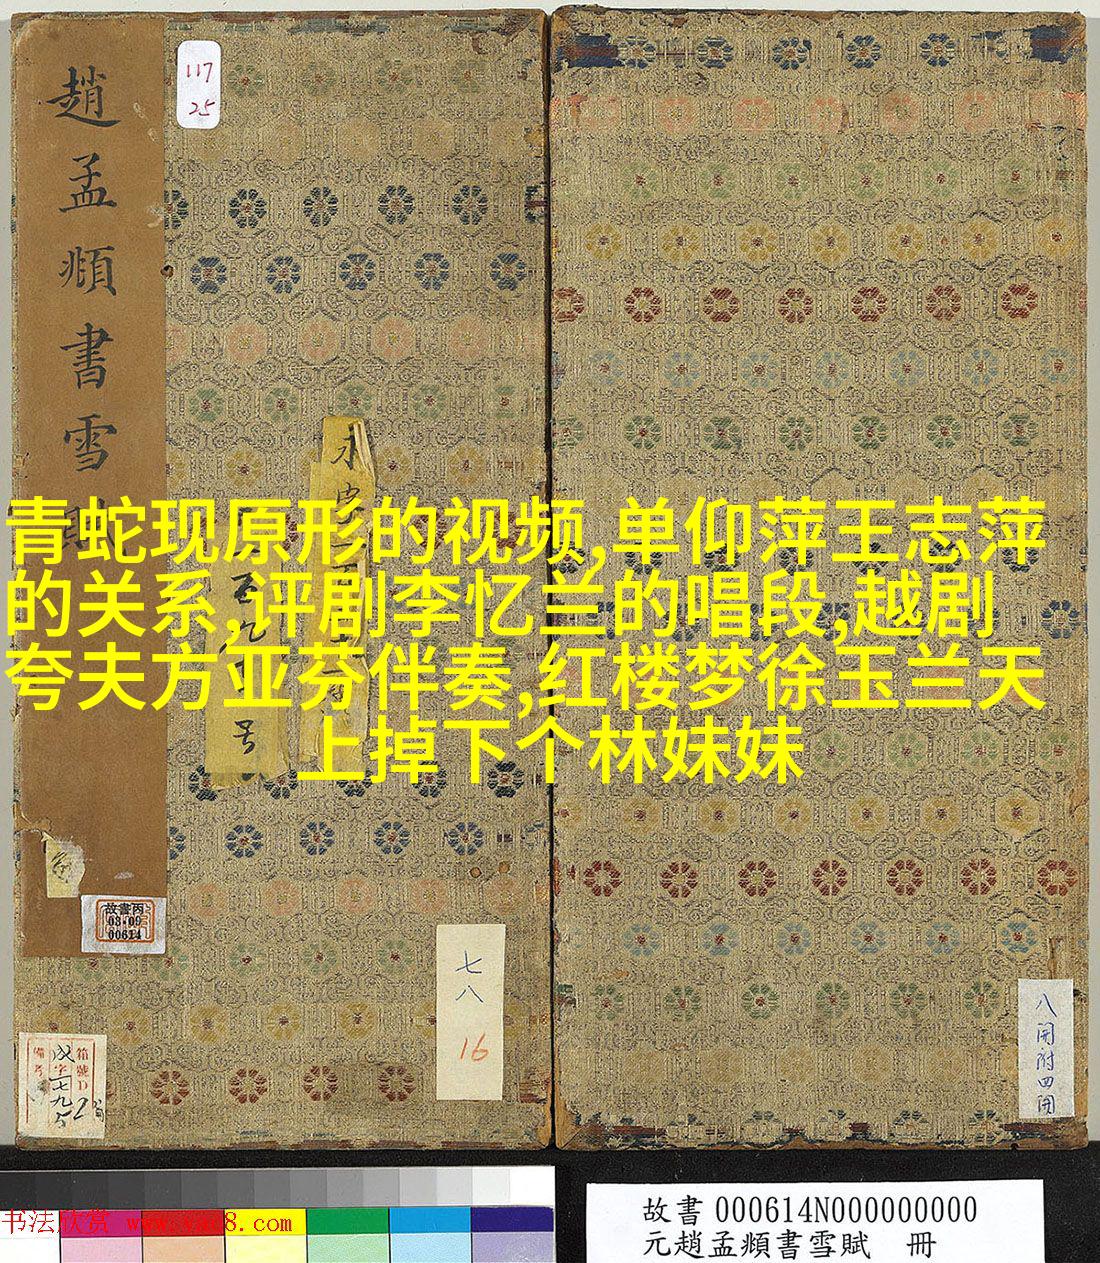 趙孟頫書雪賦
117
25
青蛇现原形的视频,单仰萍王志萍
的关系,评剧李忆兰的唱段,越剧
夸夫方亚芬伴奏,红楼梦徐玉兰天
上掉下个林妹妹
号
故書丙
08-09
00614
七八
16
八開附四開
箱號
備考
书法欣赏 www.yac8.com
故書 000614N000000000
元趙孟頫書雪賦 冊